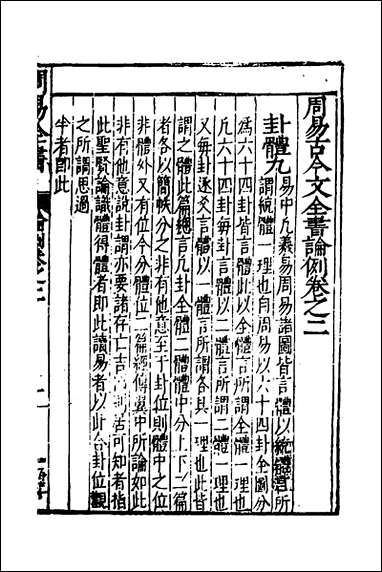 周易古今文全書論例卷之二
卦體九
易中凡義易周易諸圖皆言體以統體言所
謂統體一理也自周易以六十四卦全圖分
為六十四卦皆言體此以全體言所謂全體一理也
凡六十四卦每卦言體以二體言所謂二體一理也
又每卦逐爻言體以一體言所謂各具一理也此皆
謂之體此篇總言凡卦全體二體體中分上下二篇
者各以簡帙分之非有他意至于卦位則體中之位
非體外又有位今分體位二篇經傳彖中所論如此
非有他意說卦謂亦要諸存亡吉凶則居可知者指
此聖賢論議體得體者即此讀易者以此合卦位觀
之所謂思過
半者即此
周易全書
論例卷之二